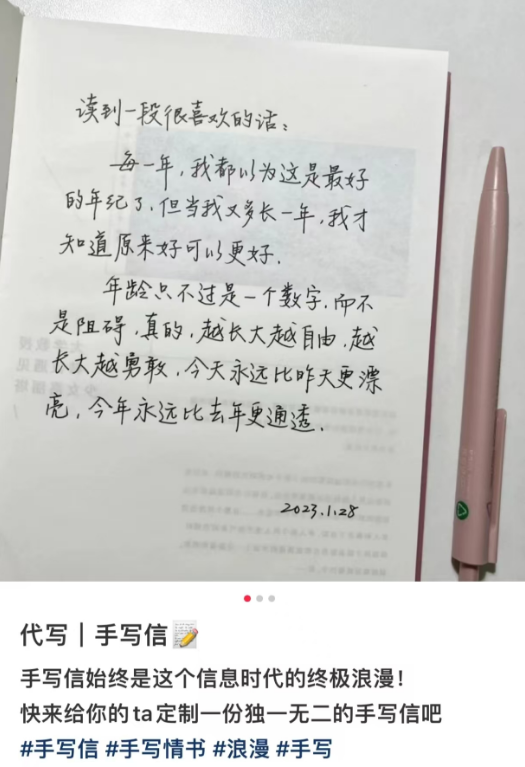 读到一段很喜欢的话：
每一年，我都以为这是最好
的年纪了，但当我又多长一年，我才
知道原来好可以更好.
年龄只不过是一个数字，而不
是阻碍，真的，越长大越自由，越
长大越勇敢，今天永远比昨天更漂
亮，今年永远比去年更通透.
2023.1.28
代写｜手写信📝
手写信始终是这个信息时代的终极浪漫！
快来给你的ta定制一份独一无二的手写信吧
#手写信 #手写情书 #浪漫 #手写